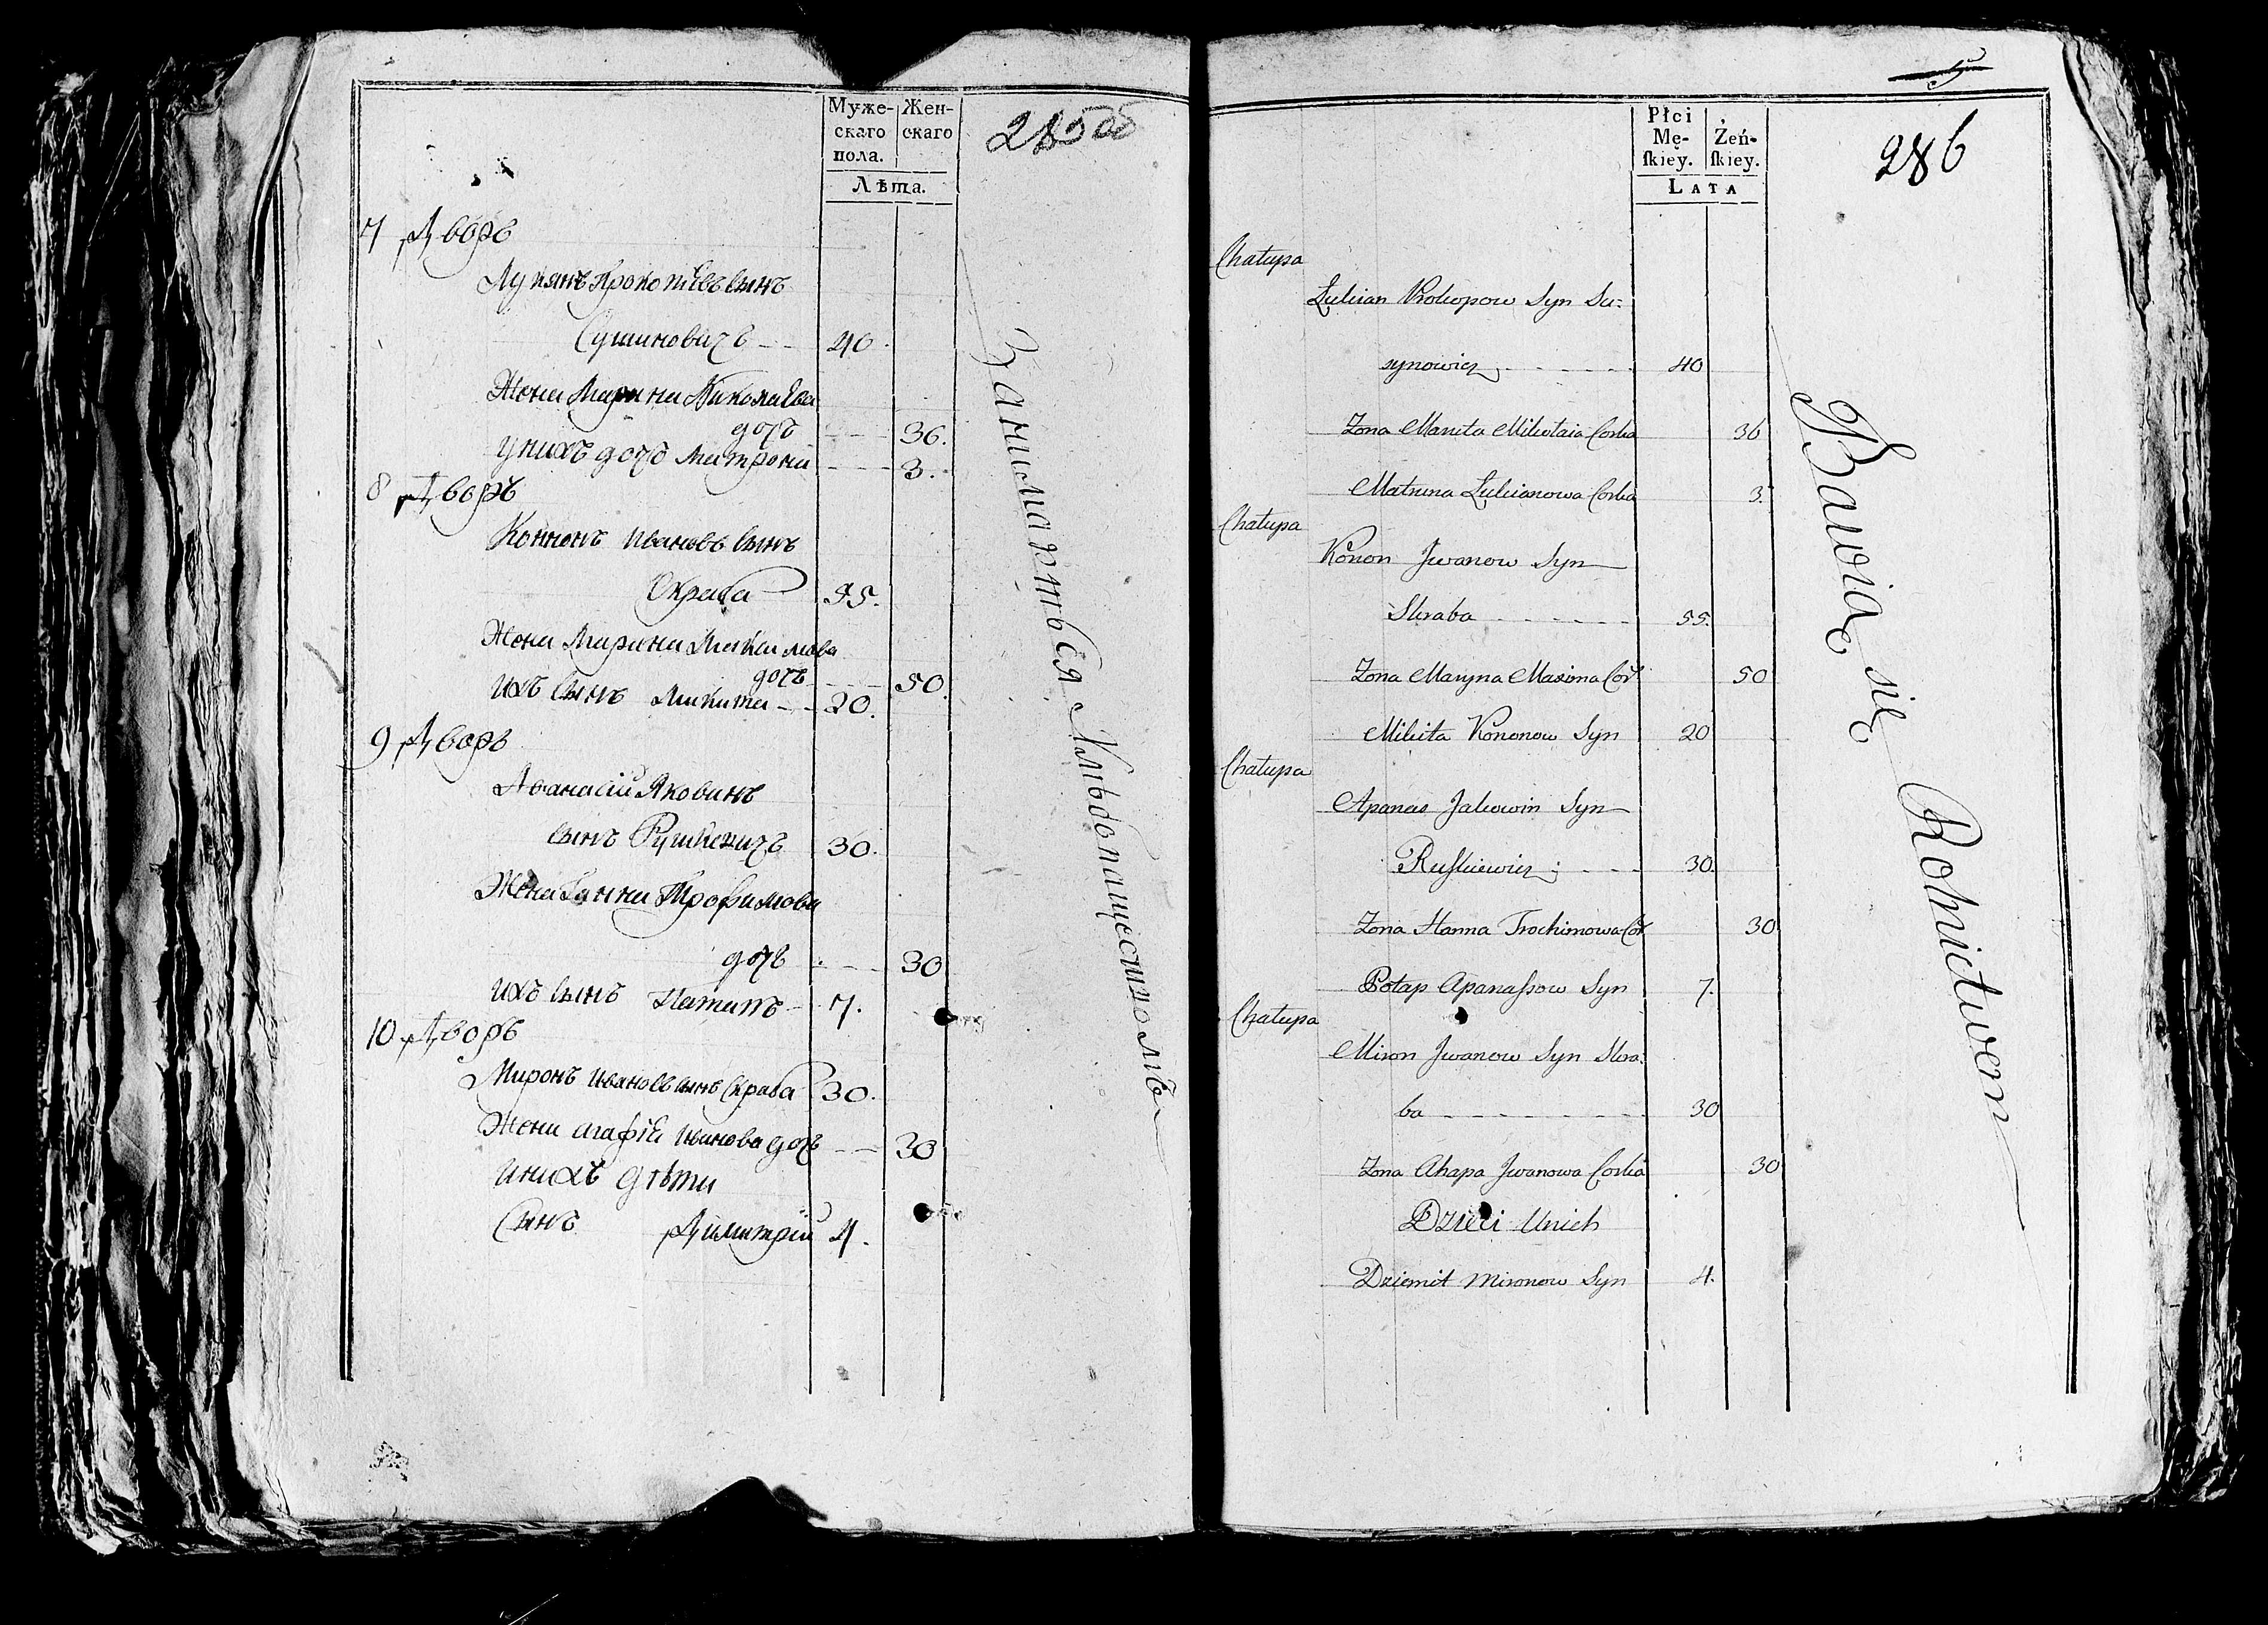 Муже-
скаго
пола.
Жен-
скаго
Лѣта.
285об
7 Дворъ
Лукянъ Прокопиевъ сынъ
Сушиновичъ - - 40.
Жена Марина Николаева
дочь - - 36.
У нихъ дочь Матрона - - 3.
8 Дворъ
Коннонъ Ивановъ сынъ
Скраба 55.
Жена Марина Максимова
дочь - - 50.
Ихъ сынъ Микита - - 20.
9 Дворъ
Афанасій Яковинъ
сынъ Рушкевичъ 30.
Жена Ганна Трофимова
дочь - - 30
Ихъ сынъ Патапъ - 7.
10 Дворъ
Миронъ Ивановъ сынъ Скраба 30.
Жена Агафіе Иванова дочь - - 30
У нихъ дѣти
Сынъ Димитрій 4.
Занимаються Хлѣбопаществом
5
286
Płci
Mę-
skiey.
Żeń-
skiey.
LATA
Chałupa
Łukian Prokopow Syn Su=
szynowicz - - - - 40
Zona Maryta Mikołaia Corka 36
Matruna Łukianowa Corka 3.
Chałupa
Konon Jwanow Syn
Skraba - - - - 55.
Zona Maryna Maxima Cor 50
Mikita Kononow Syn 20
Chałupa
Apanas Jakowin Syn
Ruszkiewicz - - - 30.
Zona Hanna Trochimowa Cor 30
Potap Apanassow Syn 7.
Chałupa
Miron Jwanow Syn Skra=
ba - - - - 30
Zona Ahapa Jwanowa Corka 30
Dzieci Unich
Dziemit Mironow Syn 4.
Bawią się Rolnictwem